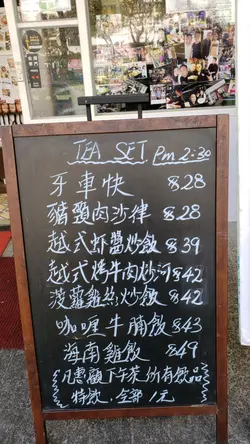 TEA SET Pm 2:30
牙車快 $28
豬頸肉沙律 $28
越式虾醬炒飯 $39
越式烤牛肉炒河 $42
菠蘿雞粒炒飯 $42
咖喱牛腩飯 $43
海南雞飯 $49
凡惠顧下午茶份有飲品
特飲. 全部 1元